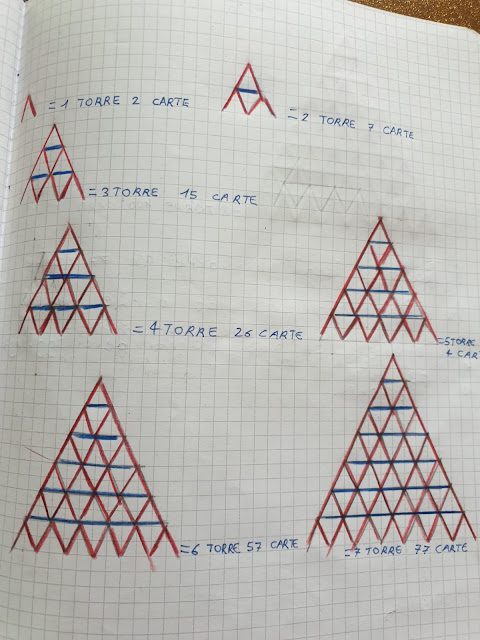 = 1 TORRE 2 CARTE
= 2 TORRE 7 CARTE
= 3 TORRE 15 CARTE
= 4 TORRE 26 CARTE
= 5 TORRE
4 CAR
= 6 TORRE 57 CARTE
= 7 TORRE 77 CARTE